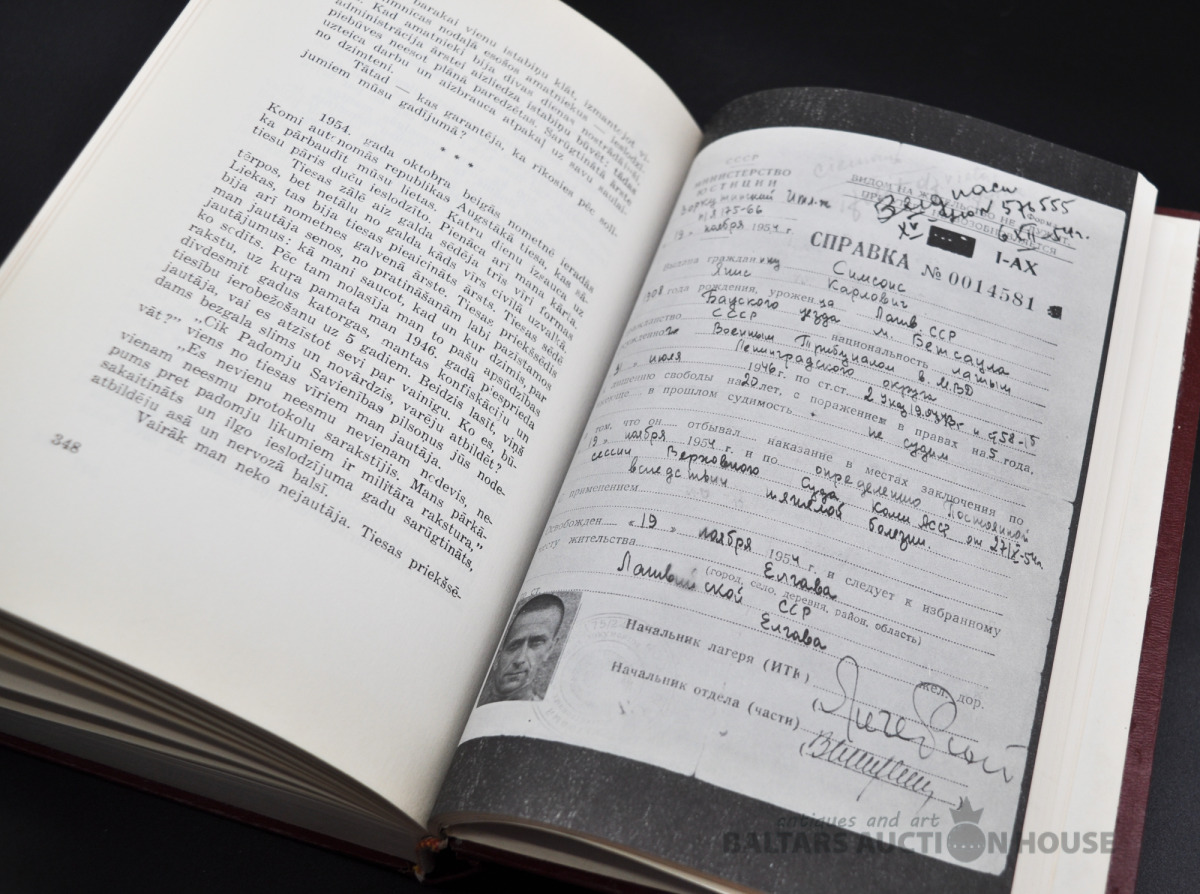 barakai vienu istabiņu klāt, izmantojot vi-
nodaļā esošos amatniekus — ieslodzī-
Kad amatnieki bija divas dienas nostrādājuši,
administrācija ārstei aizliedza istabiņu būvēt: tādas
piebūves neesot plānā paredzētas. Sarūgtinātā ārste
uzteica darbu un aizbrauca atpakaļ uz savu saulai-
no dzimteni.
Tātad — kas garantēja, ka rīkosies pēc soli-
jumiem mūsu gadījumā?
* * *
1954. gada oktobŗa beigās nometnē ieradās
Komi autonomās republikas Augstākā tiesa,
ka pārbaudīt mūsu lietas. Katru dienu izsauca uz
tiesu pāris duču ieslodzīto. Pienāca arī mana kārta.
Tiesas zālē aiz galda sēdēja trīs vīri formas
tērpos, bet netālu no galda kāds vīrs civilā uzvalkā
Liekas, tas bija tiesas pieaicināts ārsts. Tiesas sēdē
bija arī nometnes galvenā ārste. Tiesas priekšsēdis
man jautāja senos, no pratināšanām labi pazīstamos
jautājumus: kā mani saucot, kad un kur dzimis, par
ko sodīts. Pēc tam nolasīja man to pašu apsūdzības
rakstu, uz kura pamata man 1946. gadā piesprieda
divdesmit gadus katorgas, mantas konfiskāciju un
tiesību ierobežošanu uz 5 gadiem. Beidzis lasīt, viņš
jautāja, vai es atzīstot sevi par vainīgu. Ko es, bū-
dams bezgala slims un novārdzis, varēju atbildēt?
„Cik Padomju Savienības pilsoņus jūs node-
vāt?” viens no tiesas vīriem man jautāja.
„Es nevienu neesmu nevienam nodevis, ne-
vienam neesmu protokolu sarakstījis. Mans pārkā-
pums pret padomju likumiem ir militāra rakstura,”
sakaitināts un ilgo ieslodzījuma gadu sarūgtināts,
atbildēju asā un nervozā balsī.
Vairāk man neko nejautāja. Tiesas priekšsē-
348
СССР
МИНИСТЕРСТВО
ЮСТИЦИИ
№ 175-66
19 » ноября 1954 г.
ВИДОМ НА ЖИТЕЛЬСТВО НЕ СЛУЖИТ.
576555
XV
1-АХ
СПРАВКА № 0014581
Выдана гражданину Симсонс
Янис Карлович
года рождения, уроженца Латв. ССР
Бауского уезда м. Бетсаула
гражданство СССР национальность латыш
осужденного Военным Трибуналом в. МВД
Ленинградского округа
» июля 1946 г. по ст.ст.
лишению свободы на 20 лет, с поражением в правах на 5 года,
в прошлом судимость не судим
том, что он отбывал наказание в местах заключения по
19 » ноября 1954 г. и по определению Постоянной
сессии Верховного Суда Коми АССР от
вследствии тяжелой болезни.
применением
освобожден « 19 » ноября 1954 г. и следует к избранному
месту жительства Елгава
(город, село, деревня, район, область)
Латвийской ССР
Елгава
жел. дор.
Начальник лагеря (ИТК)
Начальник отдела (части)
antiques and art
BALTARS AUCTION HOUSE